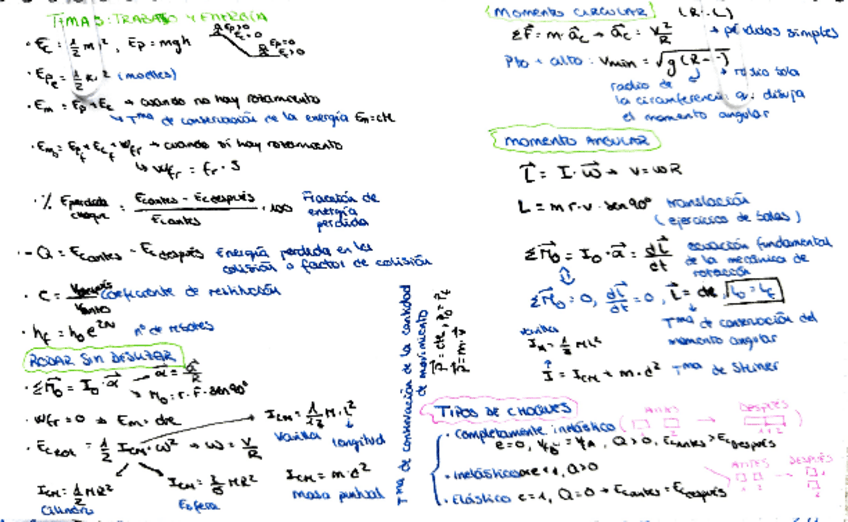 TEMA 5: TRABAJO Y ENERGÍA
· Ec = 1/2 m v², Ep = mgh
Ep>0 Ec=0
Ep=0 Ec>0
· Epe = 1/2 K x² (muelles)
· Em = Ep + Ec → cuando no hay rozamiento
↳ Tma de conservación de la energía Em=cte
· Em0 = Epf + Ecf + Wfr → cuando sí hay rozamiento
↳ Wfr = fr · S
· % Eperdida choque = (Ecantes - Ecdespués) / Ecantes · 100 Fracción de energía perdida
· -Q = Ecantes - Ecdespués Energía perdida en la colisión o factor de colisión
· e = Vdespués / Vantes coeficiente de restitución
· hf = h0 e^2N nº de rebotes
RODAR SIN DESLIZAR
· ΣM0 = I0 · α → α = a/R
↳ M0 = r · F · sen90º
· Wfr = 0 → Em = cte
· Ecrot = 1/2 ICM · ω² → ω = V/R
ICM = 1/12 M · L²
Varilla longitud
ICM = 1/2 MR²
Cilindro
ICM = 2/5 MR²
Esfera
ICM = m · d²
masa puntual
Tma de conservación de la cantidad de movimiento
p = cte, p0 = pf
p = m · v
MOMENTO CIRCULAR (R-L)
ΣF = m · ac → ac = v²/R → péndulos simples
Pto + alto: Vmin = √g(R-r) → radio bola
radio de la circunferencia q. dibuja el momento angular
MOMENTO ANGULAR
L = I · ω → v = ωR
L = m r · v · sen90º translación
(ejercicios de bolas)
ΣM0 = I0 · α = dL/dt ecuación fundamental de la mecánica de rotación
ΣM0 = 0, dL/dt = 0, L = cte, L0 = Lf
Tma de conservación del momento angular
varilla
IA = 1/3 ML²
I = ICM + m · d² Tma de Steiner
TIPOS DE CHOQUES
· Completamente inelástico ANTES → DESPUÉS
e=0, VB = VA, Q>0, Ecantes > Ecdespués
· Inelástico 0<e<1, Q>0
ANTES DESPUÉS
· Elástico e=1, Q=0 → Ecantes = Ecdespués